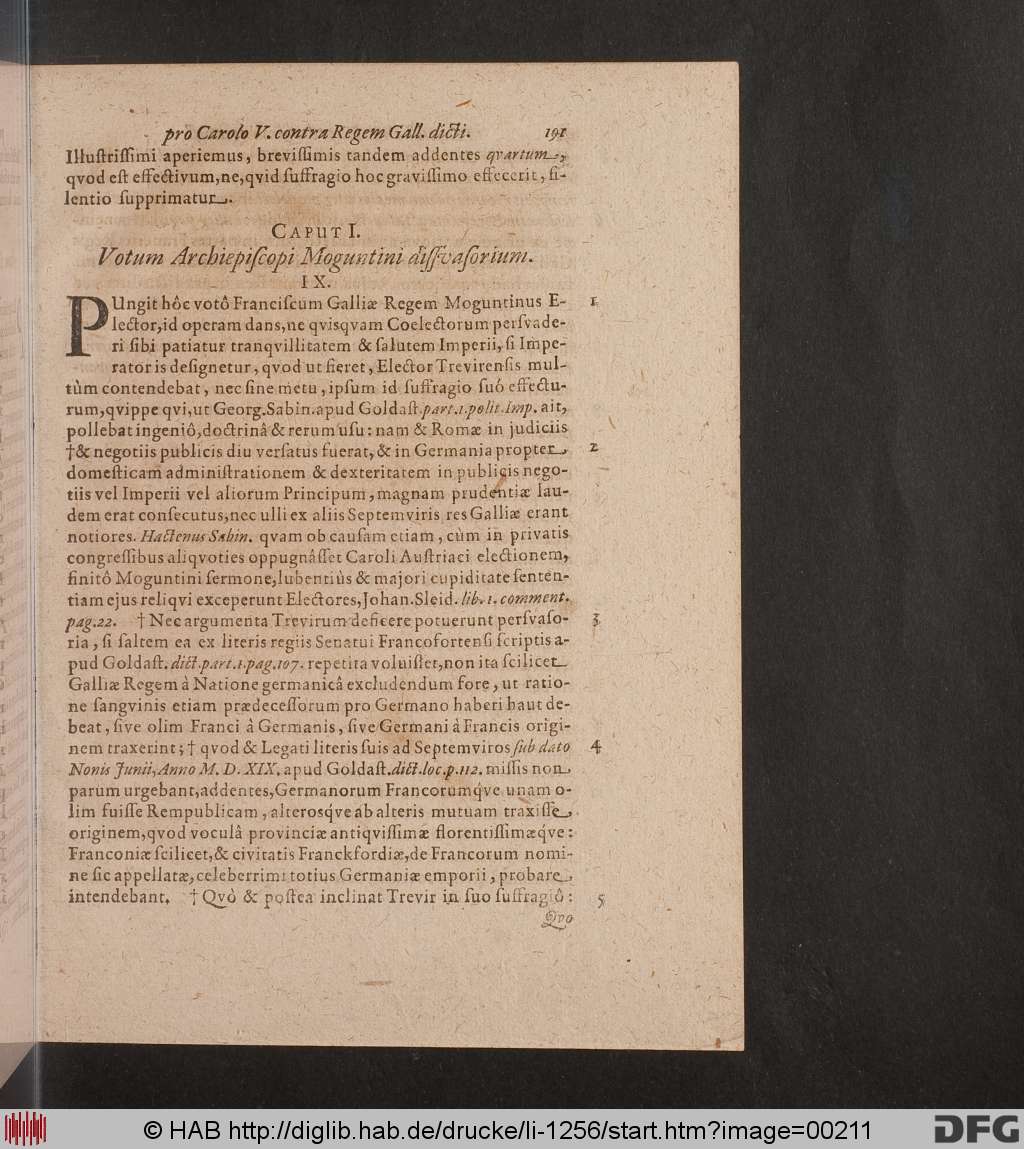 pro Carolo V. contra Regem Gall. dicti. 191
Illuſtriſſimi aperiemus, breviſſimis tandem addentes qvartum,
qvod eſt effectivum, ne, qvid ſuffragio hoc graviſſimo effecerit, ſi-
lentio ſupprimatur.
CAPUT I.
Votum Archiepiſcopi Moguntini diſſvaſorium.
IX.
PUngit hôc votô Franciſcum Galliæ Regem Moguntinus E- 1.
lector, id operam dans, ne qvisqvam Coelectorum perſvade-
ri ſibi patiatur tranqvillitatem & ſalutem Imperii, ſi Impe-
rator is deſignetur, qvod ut fieret, Elector Trevirenſis mul-
tùm contendebat, nec ſine metu, ipſum id ſuffragio ſuô effectu-
rum, qvippe qvi, ut Georg. Sabin. apud Goldaſt. part. 1. polit. Imp. ait,
pollebat ingeniô, doctrinâ & rerum uſu: nam & Romæ in judiciis
†& negotiis publicis diu verſatus fuerat, & in Germania propter 2
domeſticam adminiſtrationem & dexteritatem in publicis nego-
tiis vel Imperii vel aliorum Principum, magnam prudentiæ lau-
dem erat conſecutus, nec ulli ex aliis Septemviris res Galliæ erant
notiores. Hactenus Sabin. qvam ob cauſam etiam, cùm in privatis
congreſſibus aliqvoties oppugnâſſet Caroli Auſtriaci electionem,
finitô Moguntini ſermone, lubentiùs & majori cupiditate ſenten-
tiam ejus reliqvi exceperunt Electores, Johan. Sleid. lib. 1. comment.
pag. 22. † Nec argumenta Trevirum deficere potuerunt perſvaſo- 3
ria, ſi ſaltem ea ex literis regiis Senatui Francofortenſi ſcriptis a-
pud Goldaſt. dict. part. 1. pag. 107. repetita voluiſſet, non ita ſcilicet
Galliæ Regem à Natione germanicâ excludendum fore, ut ratio-
ne ſangvinis etiam prædeceſſorum pro Germano haberi haut de-
beat, ſive olim Franci à Germanis, ſive Germani à Francis origi-
nem traxerint; † qvod & Legati literis ſuis ad Septemviros ſub dato 4
Nonis Junii, Anno M. D. XIX. apud Goldaſt. dict. loc. p. 112. miſſis non
parum urgebant, addentes, Germanorum Francorumq́ve unam o-
lim fuiſſe Rempublicam, alterosq́ve ab alteris mutuam traxiſſe
originem, qvod voculâ provinciæ antiqviſſimæ florentiſſimæq́ve:
Franconiæ ſcilicet, & civitatis Franckfordiæ, de Francorum nomi-
ne ſic appellatæ, celeberrimi totius Germaniæ emporii, probare
intendebant. † Qvò & poſtea inclinat Trevir in ſuo ſuffragiô: 5
Qvo
© HAB http://diglib.hab.de/drucke/li-1256/start.htm?image=00211
DFG